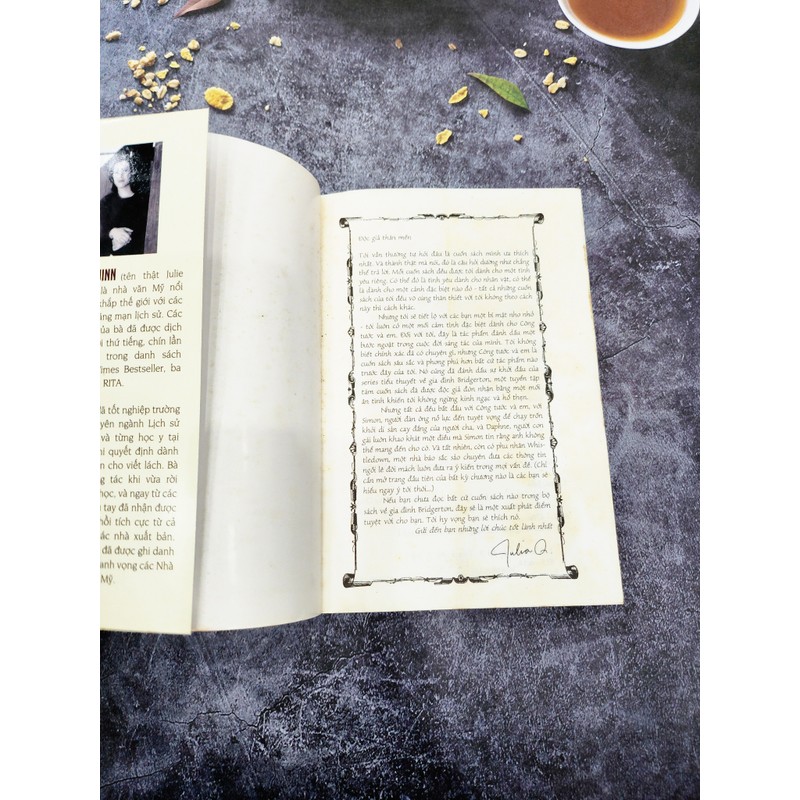 UINN (tên thật Julie
là nhà văn Mỹ nổi
khắp thế giới với các
ãng mạn lịch sử. Các
của bà đã được dịch
i thứ tiếng, chín lần
trong danh sách
Times Bestseller, ba
RITA.
đã tốt nghiệp trường
yên ngành Lịch sử
và từng học y tại
hi quyết định dành
n cho viết lách. Bà
tác khi vừa rời
học, và ngay từ các
tay đã nhận được
ồi tích cực từ cả
ác nhà xuất bản.
đã được ghi danh
anh vọng các Nhà
Mỹ.
Độc giả thân mến
Tôi vẫn thường tự hỏi đâu là cuốn sách mình ưa thích
nhất. Và thành thật mà nói, đó là câu hỏi dường như chẳng
thể trả lời. Mỗi cuốn sách đều được tôi dành cho một tình
yêu riêng. Có thể đó là tình yêu dành cho nhân vật, có thể
là dành cho một cảnh đặc biệt nào đó - tất cả những cuốn
sách của tôi đều vô cùng thân thiết với tôi không theo cách
này thì cách khác.
Nhưng tôi sẽ tiết lộ với các bạn một bí mật nho nhỏ
- tôi luôn có một mối cảm tình đặc biệt dành cho Công
tước và em. Đối với tôi, đây là tác phẩm đánh dấu một
bước ngoặt trong cuộc đời sáng tác của mình. Tôi không
biết chính xác đã có chuyện gì, nhưng Công tước và em là
cuốn sách sâu sắc và phong phú hơn bất cứ tác phẩm nào
trước đây của tôi. Nó cũng đã đánh dấu sự khởi đầu của
series tiểu thuyết về gia đình Bridgerton, một tuyển tập
tám cuốn sách đã được độc giả đón nhận bằng một mối
ân tình khiến tôi không ngừng kinh ngạc và hổ thẹn.
Nhưng tất cả đều bắt đầu với Công tước và em, với
Simon, người đàn ông nỗ lực đến tuyệt vọng để chạy trốn
khỏi di sản cay đắng của người cha, và Daphne, người con
gái luôn khao khát một điều mà Simon tin rằng anh không
thể mang đến cho cô. Và tất nhiên, còn có phu nhân Whis-
tledown, một nhà báo sắc sảo chuyên đưa các thông tin
ngồi lê đôi mách luôn đưa ra ý kiến trong mọi vấn đề. (Chỉ
cần mở trang đầu tiên của bất kỳ chương nào là các bạn sẽ
hiểu ngay ý tôi thôi...)
Nếu bạn chưa đọc bất cứ cuốn sách nào trong bộ
sách về gia đình Bridgerton, đây sẽ là một xuất phát điểm
tuyệt vời cho bạn. Tôi hy vọng bạn sẽ thích nó.
Gửi đến bạn những lời chúc tốt lành nhất
Julia Q.